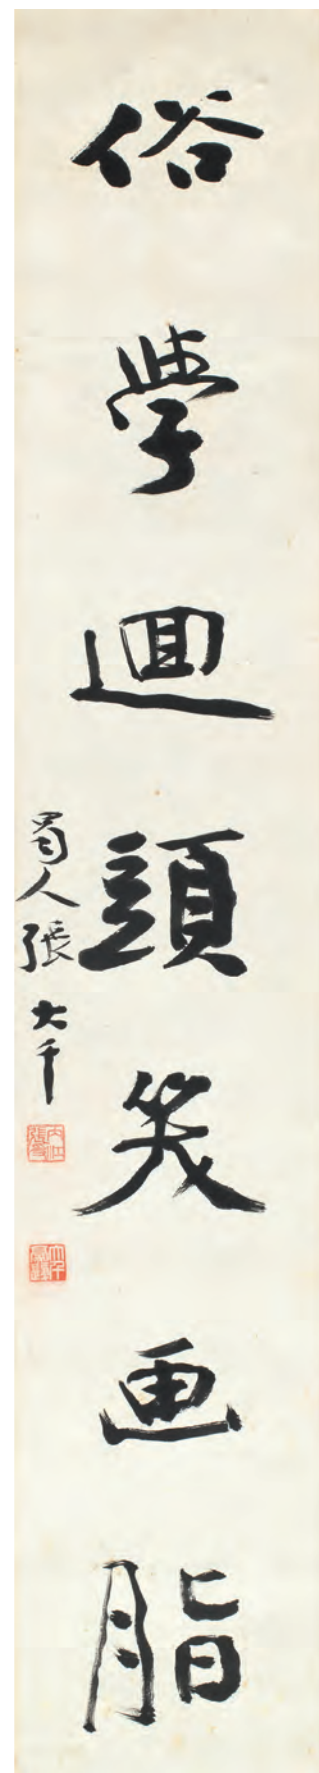 俗學迴頭笑画脂
蜀人張大千